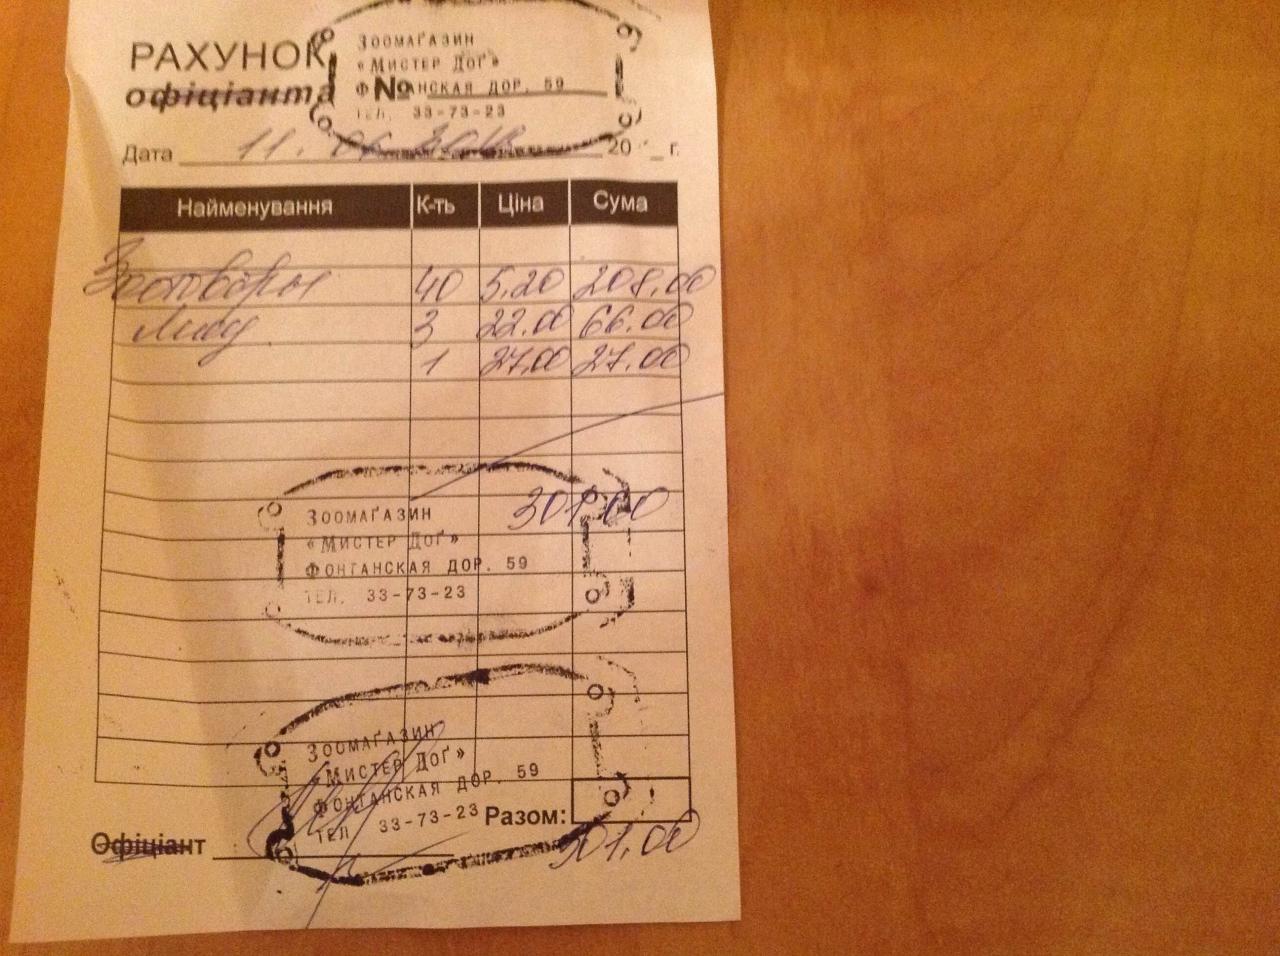 РАХУНОК
офіціанта
Зоомаґазин
«Мистер Доґ»
№
Фонтанская дор. 59
тел. 33-73-23
Дата 11. 06. 2013 20 г.
Найменування К-ть Ціна Сума
Зоотовары 40 5.20 208.00
3 22.00 66.00
1 27,00 27.00
301.00
Зоомаґазин
«Мистер Доґ»
Фонтанская дор. 59
тел. 33-73-23
Зоомаґазин
«Мистер Доґ»
Фонтанская дор. 59
тел 33-73-23
Разом:
301.00
Офіціант